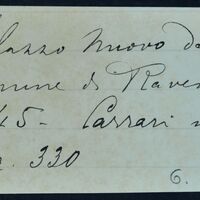 lazzo Nuovo d
mune di Rave
45 - Carrari
330
6.